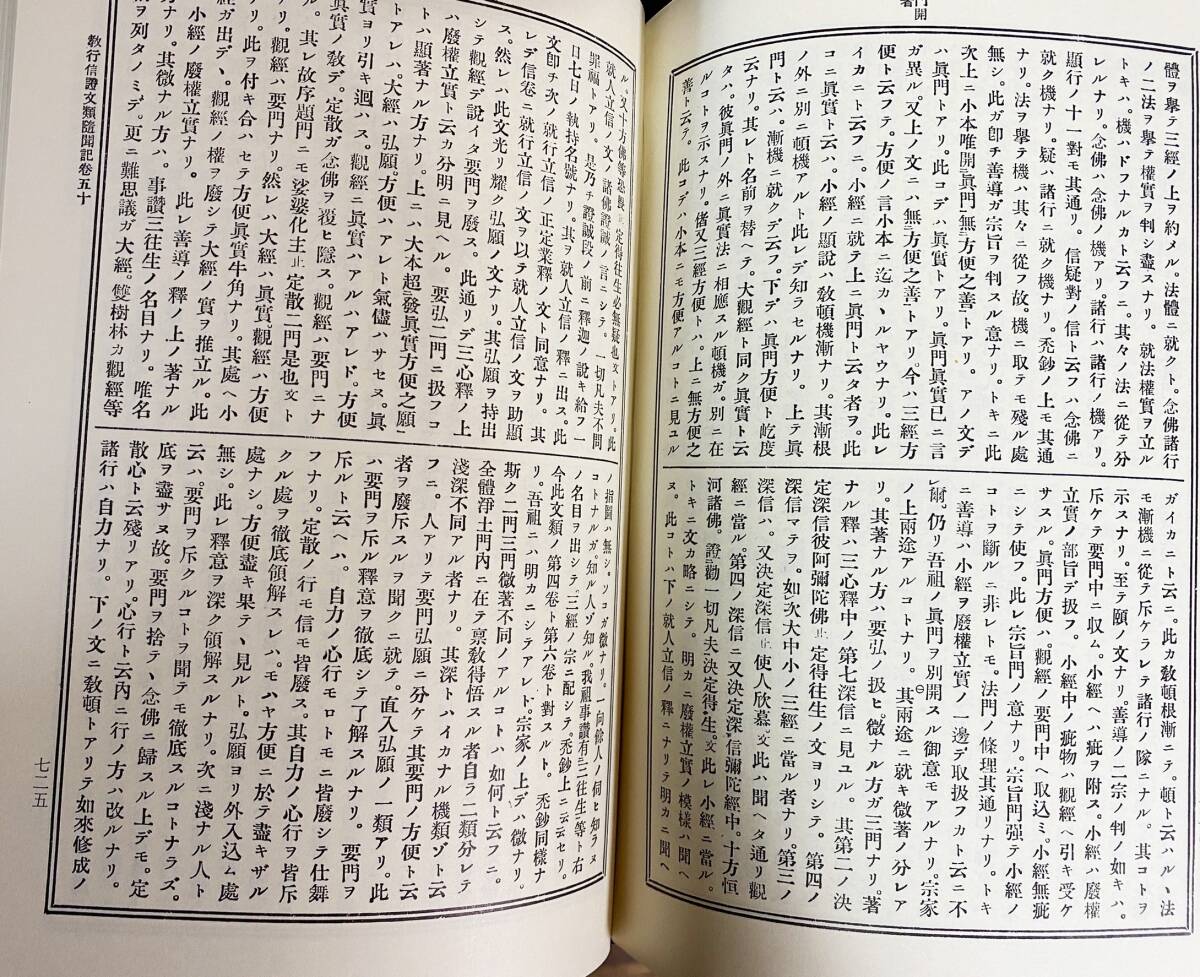 門開
著
體ヲ舉テ三經ノ上ヲ約メル。法體ニ就クト。念佛諸行
ノ二法ヲ舉テ權實ヲ判シ盡スナリ。就法權實ヲ立ル
トキハ。機ハドフナルカト云フニ。其々ノ法ニ從テ分
レルナリ。念佛ハ念佛ノ機アリ。諸行ハ諸行ノ機アリ。
顯行ノ十一對モ其通リ。信疑對ノ信ト云フハ念佛ニ
就ク機ナリ。疑ハ諸行ニ就ク機ナリ。禿鈔ノ上モ其通
ナリ。法ヲ舉テ機ハ其々ニ從フ故。機ニ取テモ殘ル處
無シ。此ガ卽チ善導ガ宗旨ヲ判スル意ナリ。トキニ此
次上ニ小本唯開眞門無方便之善トアリ。アノ文デ
ハ眞門トアリ。此コデハ眞實トアリ。眞門眞實已ニ言
ガ異ル。又上ノ文ニハ無方便之善トアリ。今ハ三經方
便ト云フテ。方便ノ言小本ニ迄カヽルヤウナリ。此レ
イカニト云フニ。小經ニ就テ上ニ眞門ト云タ者ヲ。此
コニ眞實ト云ハ。小經ノ顯說ハ敎頓機漸ナリ。其漸根
ノ外ニ別ニ頓機アルト此レデ知ラセルナリ。上テ眞
門ト云ハ。漸機ニ就クデ云フ。下デハ眞門方便ト屹度
云ナリ。其レト名前ヲ替ヘテ。大觀經ト同ク眞實ト云
タハ。彼眞門ノ外ニ眞實法ニ相應スル頓機ガ。別ニ在
ルコトヲ示スナリ。偖又三經方便トハ。上ニ無方便之
善ト云テ。此コデハ小本ニモ方便アルコトニ見ユル
ガイカニト云ニ。此カ敎頓根漸ニテ。頓ト云ハルヽ法
モ漸機ニ從テ斥ケラレテ諸行ノ隊ニナル。其コトヲ
示スナリ。至テ願ノ文ナリ。善導ノ二宗ノ判ノ如キハ。
斥ケテ要門中ニ収ム。小經ヘハ疵ヲ附ス。小經ハ廢權
立實ノ部旨デ扱フ。小經中ノ疵物ハ觀經ヘ引キ受ケ
サスル。眞門方便ハ。觀經ノ要門中ヘ取込ミ。小經無疵
ニシテ使フ。此レ宗旨門ノ意ナリ。宗旨門强テ小經ノ
コトヲ斷ルニ非レトモ。法門ノ條理其通リナリ。トキ
ニ善導ハ小經ヲ廢權立實ノ一邊デ取扱フカト云ニ不
爾。仍リ吾祖ノ眞門ヲ別開スル御意モアルナリ。宗家
ノ上兩途アルコトナリ。其兩途ニ就キ微著ノ分レア
リ。其著ナル方ハ要弘ノ扱ヒ。微ナル方ガ三門ナリ。著
ナル釋ハ三心釋中ノ第七深信ニ見ユル。其第二ノ決
定深信彼阿彌陀佛止定得往生ノ文ヨリシテ。第四ノ
深信マテヲ。如次大中小ノ三經ニ當ル者ナリ。第三ノ
深信ハ。又決定深信止使人欣慕文此ハ聞ヘタ通リ觀
經ニ當ル。第四ノ深信ニ又決定深信彌陀經中。十方恒
河諸佛。證勸一切凡夫決定得生。文此レ小經ニ當ル。
トキニ文カ略ニシテ。明カニ廢權立實ノ模樣ハ聞ヘ
ヌ。此コトハ下ノ就人立信ノ釋ニナリテ明カニ聞ヘ
ル。又十方佛等恐畏止定得往生必無疑也文トアリ。此
就人立信ノ文ノ諸佛證誠ノ言ニシテ。一切凡夫不問
罪福トアリ。是乃チ證誠段ノ前ニ釋迦ノ說キ給フ一
日七日ノ執持名號ナリ。其ヲ就人立信ノ釋ニ出ス。此
文卽チ次ノ就行立信ノ正定業釋ノ文ト同意ナリ。其
レデ信卷ニ就行立信ノ文ヲ以テ就人立信ノ文ヲ助顯
ス。然レハ此文光リ耀ク弘願ノ文ナリ。其弘願ヲ持出
シテ觀經デ說イタ要門ヲ廢ス。此通リデ三心釋ノ上
ハ廢權立實ト云カ分明ニ見ヘル。要弘二門ニ扱フコ
ト顯著ナル方ナリ。上ニハ大本超發眞實方便之願
トアレハ。大經ハ弘願。方便ハアレト氣儘ハサセス。眞
實ヨリ引キ迴ハス。觀經ニ眞實ハアルハアレド。方便
眞實ノ敎デ。定散ガ念佛ヲ覆ヒ隱ス。觀經ハ要門ニナ
ル。其レ故序題門ニモ娑婆化主止定散二門是也文ト
アリ。觀經ハ要門ナリ。然レハ大經ハ眞實。觀經ハ方便
ナリ。此ヲ付キ合ハセテ方便眞實牛角ナリ。其處ヘ小
經ガ出デヽ。觀經ノ權ヲ廢シテ大經ノ實ヲ推立ル。此
小經ノ廢權立實ナリ。此レ善導ノ釋ノ上ノ著ナル
方ナリ。其微ナル方ハ。事讚三往生ノ名目ナリ。唯名
ヲ列タノミデ。更ニ難思議ガ大經。雙樹林カ觀經等
ノ指圖ハ無シ。ソコガ微ナリ。一向餘人ノ伺ヒ知ラヌ
コトナルガ。知ル人ゾ知ル。我祖事讚有三往生等ト右
ノ名目ヲ出シテ。三經ノ宗ニ配シテ。禿鈔上ニ云云セリ。
今此文類ノ第四卷ト第六卷ト對スルト。禿鈔同樣ナ
リ。吾祖ニハ明カニシテアレド。宗家ノ上デハ微ナリ。
斯ク二門三門微著不同ノアルコトハ。如何ト云フニ。
全體淨土門內ニ在テ禀敎得悟スル者自ラ二類分レテ
淺深不同アル者ナリ。其深トハイカナル機類ゾト云
フニ。人アリテ要門弘願ニ分ケテ其要門ノ方便ト云
者ヲ廢斥スルヲ聞クニ就テ。直入弘願ノ一類アリ。此
ハ要門ヲ斥ル釋意ヲ徹底シテ了解スルナリ。要門ヲ
斥ルト云ヘハ。自力ノ心行モロトモニ皆廢シテ仕舞
フナリ。定散ノ行モ信モ皆廢ス。其自力ノ心行ヲ皆斥
クル處ヲ徹底領解スレハ。モハヤ方便ニ於テ盡キザル
處ナシ。方便盡キ果テヽ見ルト。弘願ヨリ外入込ム處
無シ。此レ釋意ヲ深ク領解スルナリ。次ニ淺ナル人ト
云ハ。要門ヲ斥クルコトヲ聞テモ徹底スルコトナラズ。
底ヲ盡サヌ故。要門ヲ捨テヽ念佛ニ歸スル上デモ。定
散心ト云殘リアリ。心行ト云內ニ行ノ方ハ改ルナリ。
諸行ハ自力ナリ。下ノ文ニ敎頓トアリテ如來修成ノ
敎行信證文類隨聞記卷五十
七二五